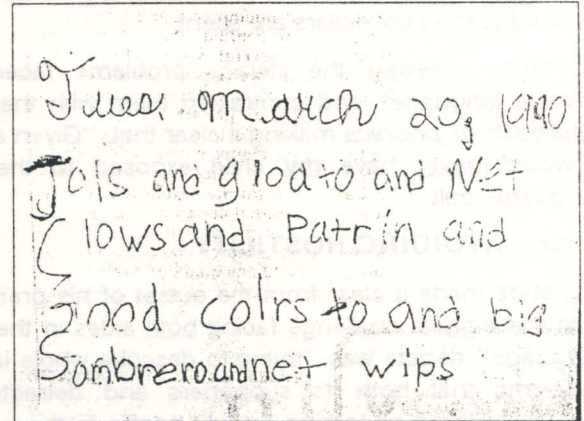 Tues. March 20, 1990
Jais and good to and NET
Clows and Patrin and
Good colrs to and big
Sombreroannet wips